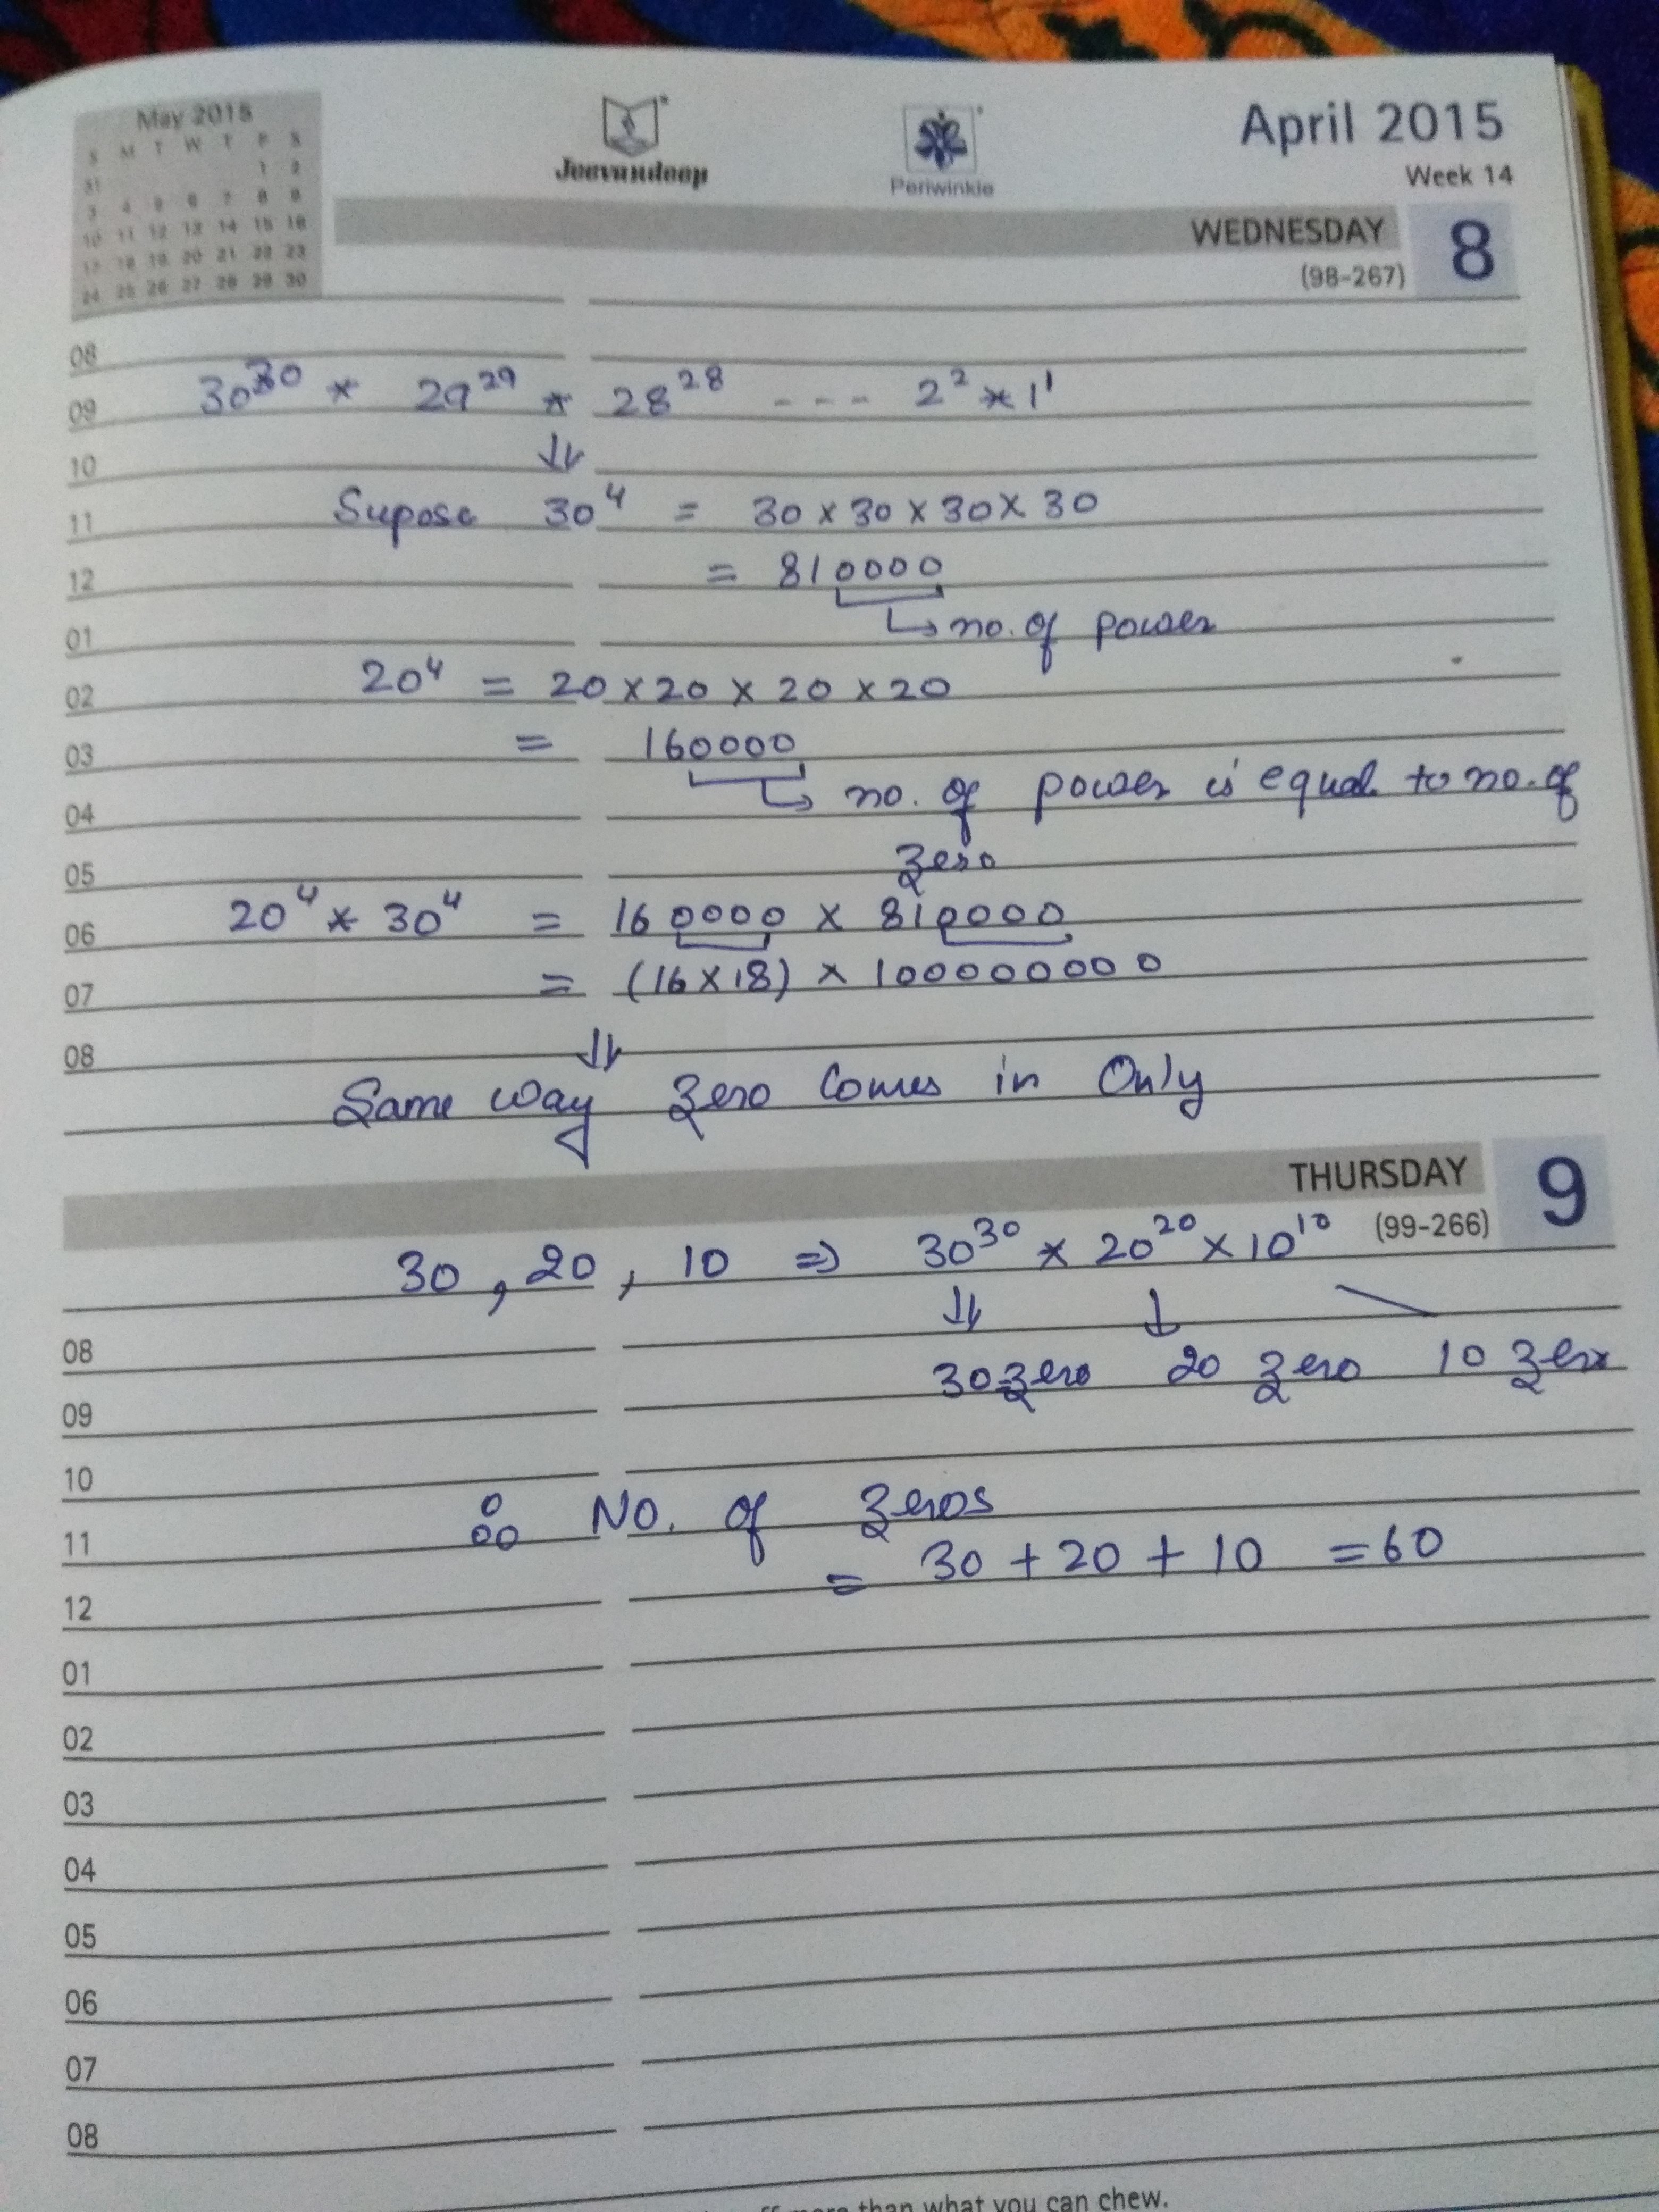 May 2015
S M T W T F S
31 1 2
3 4 5 6 7 8 9
10 11 12 13 14 15 16
17 18 19 20 21 22 23
24 25 26 27 28 29 30
Jeevandeep
Periwinkle
April 2015
Week 14
WEDNESDAY 8
(98-267)
08
09 30³⁰ * 29²⁹ * 28²⁸ - - - 2² * 1¹
10 ⇓
11 Supose 30⁴ = 30 × 30 × 30 × 30
12 = 810000
01 ↳ no. of power
02 20⁴ = 20 × 20 × 20 × 20
03 = 160000
04 ↳ no. of power is equal to no. of
05 zero
06 20⁴ * 30⁴ = 160000 × 810000
07 = (16×18) × 100000000
08 ⇓
Same way zero comes in Only
THURSDAY 9
(99-266)
30, 20, 10 ⇒ 30³⁰ * 20²⁰ × 10¹⁰
08 ⇓ ↓
09 30 zero 20 zero 10 zero
10
11 ∴ No. of zeros
12 = 30 + 20 + 10 = 60
01
02
03
04
05
06
07
08
more than what you can chew.